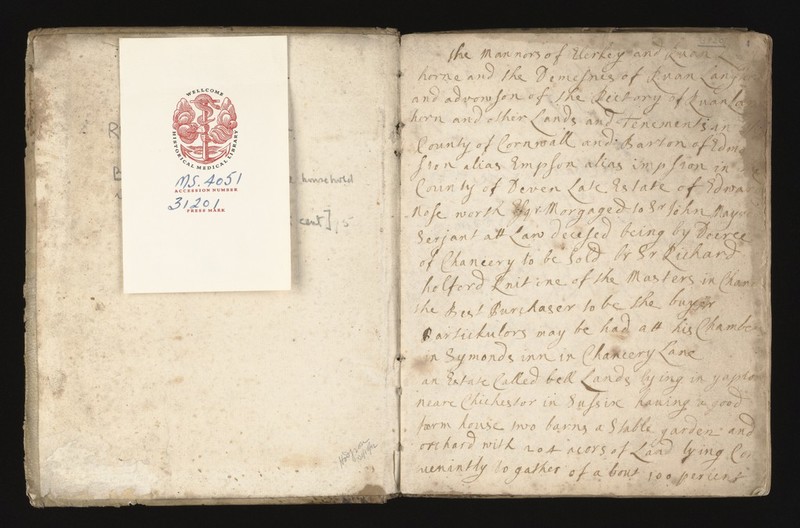 WELLCOME
HISTORICAL MEDICAL LIBRARY
MS. 4051
ACCESSION NUMBER
31201
PRESS MARK
household
cent]
the Mannors of and
horne and the Demesnes of Ruan
and advowson of the Rectory of Ruan
horn and other Lands and Tenements in
County of Cornwall and Barton of
ston alias Empson alias impston in
County of Deven Late Estate of
Nose worth Esqr Morgaged to Sr John
Serjant att Law decesed being by
of Chancery to be Sold by Sr Richard
holford Knit one of the Masters in
the Best Purchaser to be the buyer
Partickulors may be had att his
in Symonds inn in Chancery Lane
an Estate Called bell Lands lying in
neare Chichestor in Sussix having a good
farm house two barns a Stable garden and
orchard with 204 acors of Land lying
venintly to gather of a bout 100